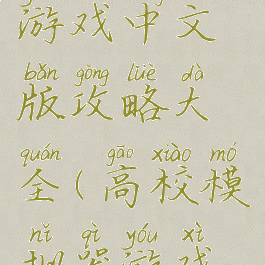 游戏中文
bǎn gōng lüè dà
版攻略大
quán gāo xiào mó
全(高校模
nǐ qì yóu xì
拟器游戏